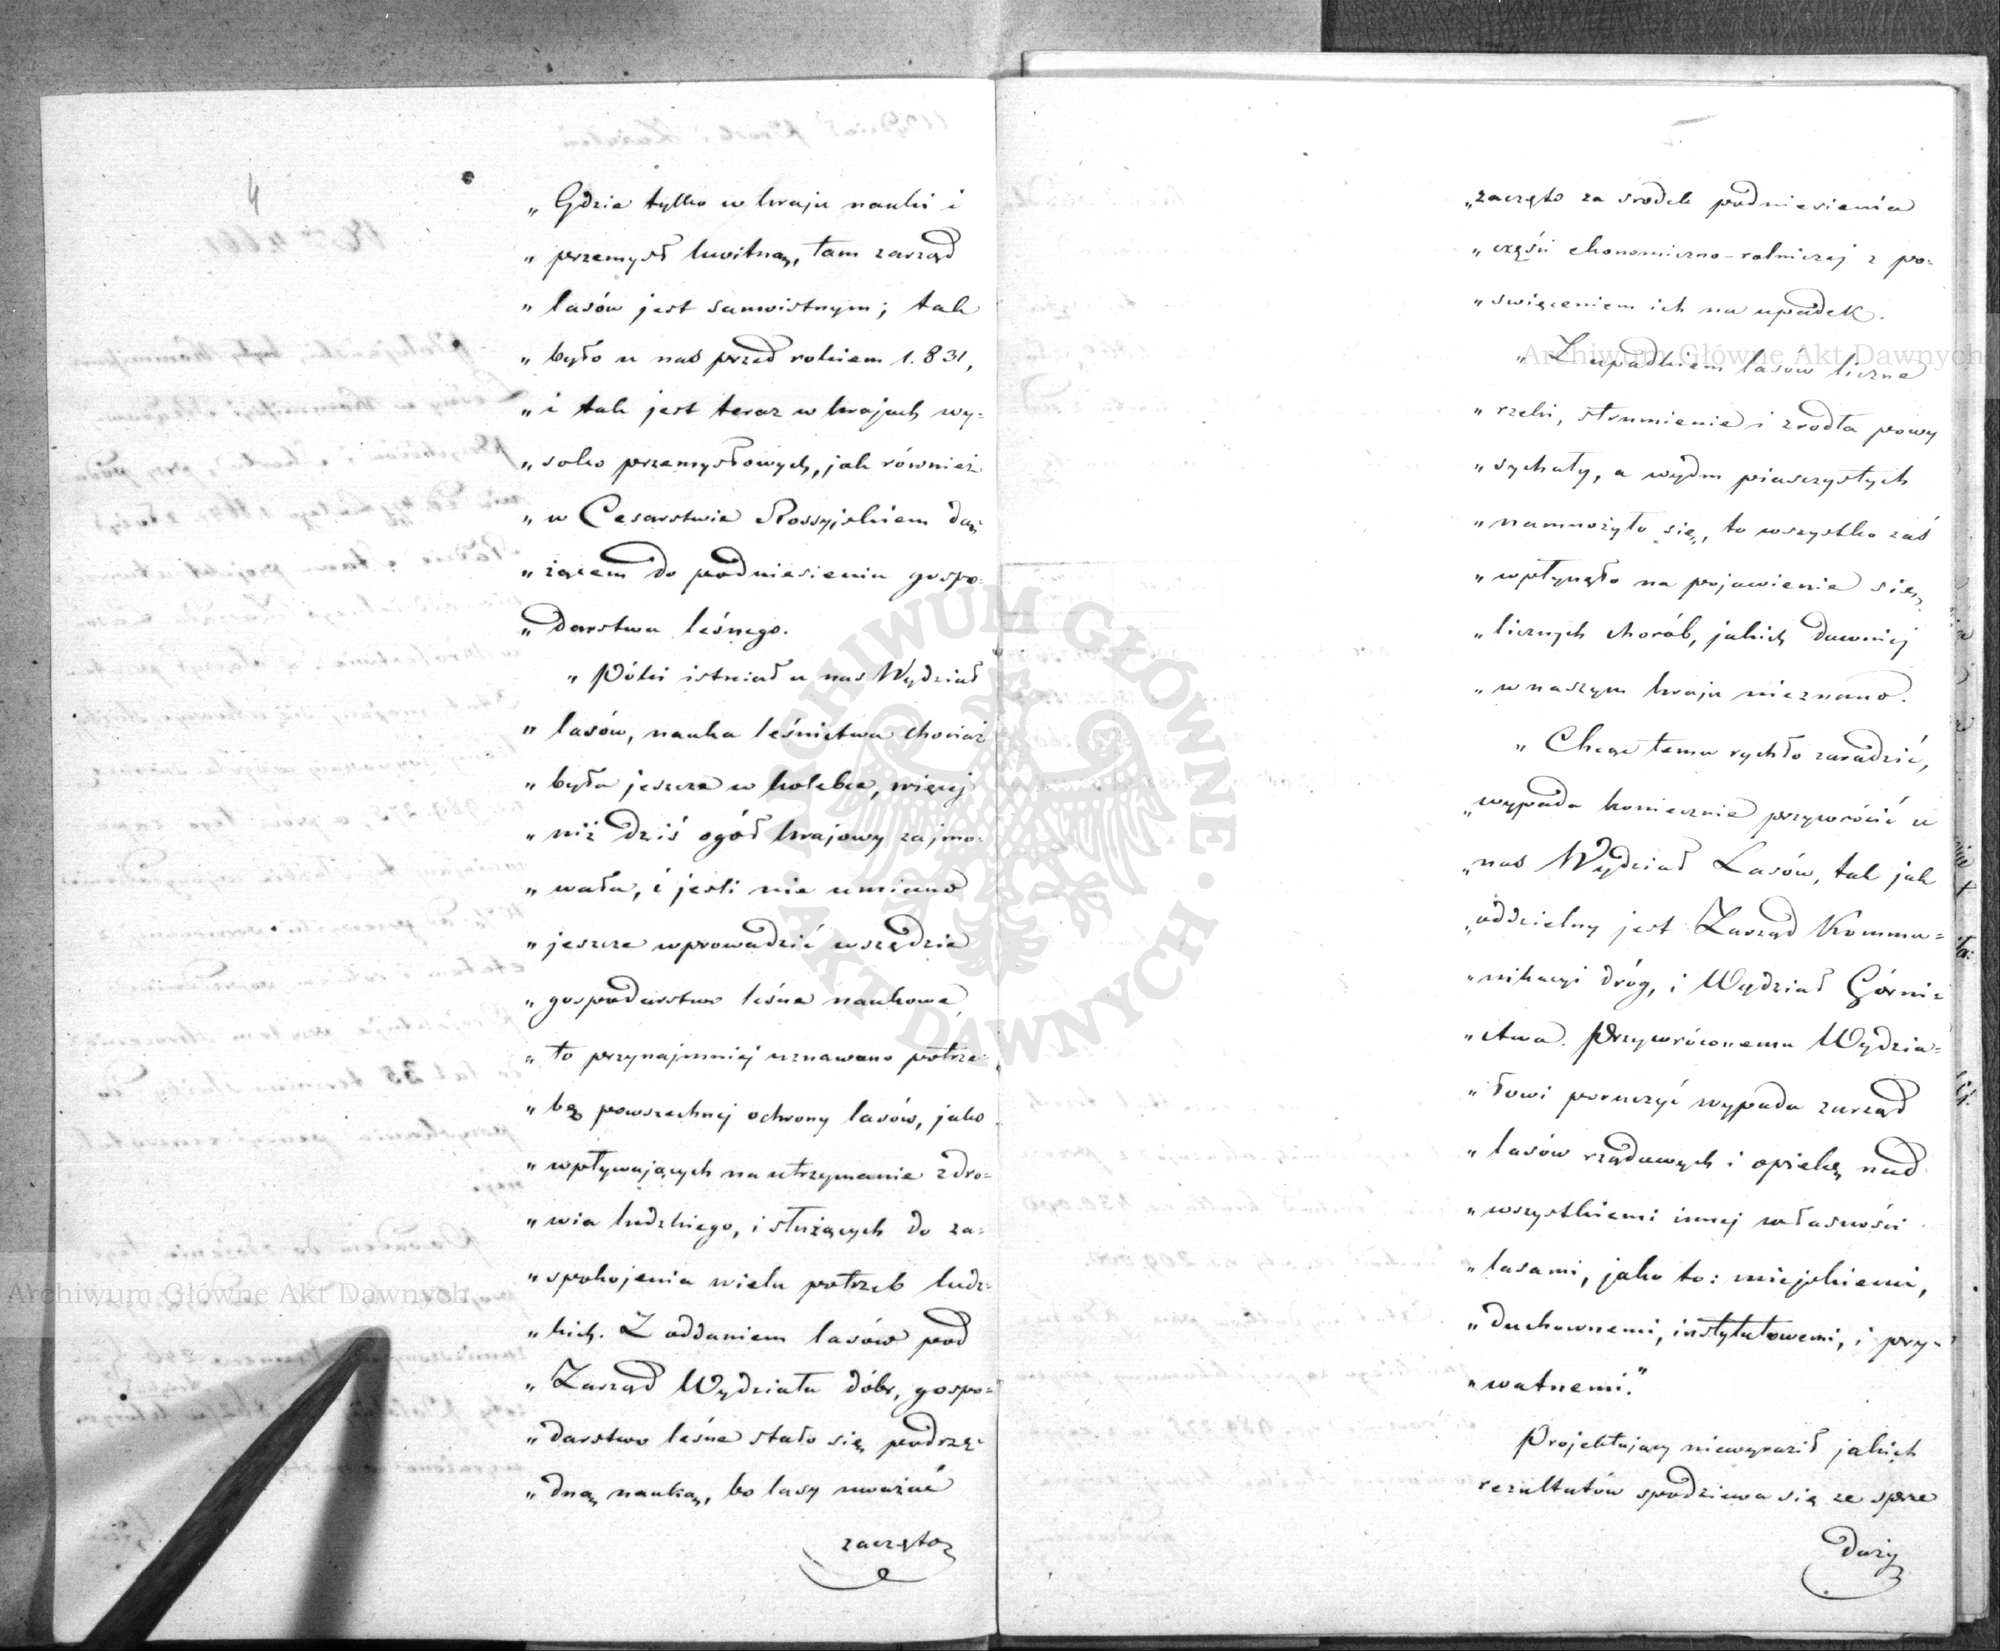 4
„ Gdzie tylko w kraju nauki i
„ przemysł kwitną, tam zarząd
„ lasów jest samoistnym; tak
„ było u nas przed rokiem 1.831,
„ i tak jest teraz w krajach wy=
„ soko przemysłowych, jak również
„ w Cesarstwie Rossyjskiem dą=
„ żącem do podniesienia gospo=
„ darstwa leśnego.
„ Póki istniał u nas Wydział
„ lasów, nauka leśnictwa chociaż
„ była jeszcze w kolebce, więcej
„ niż dziś ogół krajowy zajmo=
„ wała, i jeśli nie umiano
„ jeszcze wprowadzić wszędzie
„ gospodarstwo leśne naukowe,
„ to przynajmniej uznawano potrze=
„ bę powszechnej ochrony lasów, jako
„ wpływających na utrzymanie zdro=
„ wia ludzkiego, i służących do za=
„ spokojenia wielu potrzeb ludz=
„ kich. Z oddaniem lasów pod
„ Zarząd Wydziału dóbr, gospo=
„ darstwo leśne stało się podrzę=
„ dną nauką, bo lasy uważać
zaczęto
5
„ zaczęto za srodek podniesienia
„ części ekonomiczno-rolniczej z po=
„ swięceniem ich na upadek.
„ Z upadkiem lasów liczne
„ rzeki, strumienie i zrodła powy
„ sychały, a wydm piasczystych
„ namnożyło się, to wszystko zaś
„ wpłynęło na pojawienie się
„ licznych chorób, jakich dawniej
„ w naszym kraju nieznano.
„ Chcąc temu rychło zaradzić,
„ wypada koniecznie przywrócić u
„ nas Wydział Lasów, tak jak
„ oddzielny jest Zarząd Kommu=
„ nikacyi dróg, i Wydział Górni=
„ ctwa. Przywróconemu Wydzia=
„ łowi poruczyć wypada zarząd
„ lasów rządowych i opiekę nad
„ wszystkiemi innej własności
„ lasami, jako to: miejskiemi,
„ duchownemi, instytutowemi, i pry=
„ watnemi."
Projektujący niewyraził jakich
rezultatów spodziewa się ze sprze
daży
Archiwum Główne Akt Dawnych
Archiwum Główne Akt Dawnych
ARCHIWUM GŁÓWNE • AKT DAWNYCH •